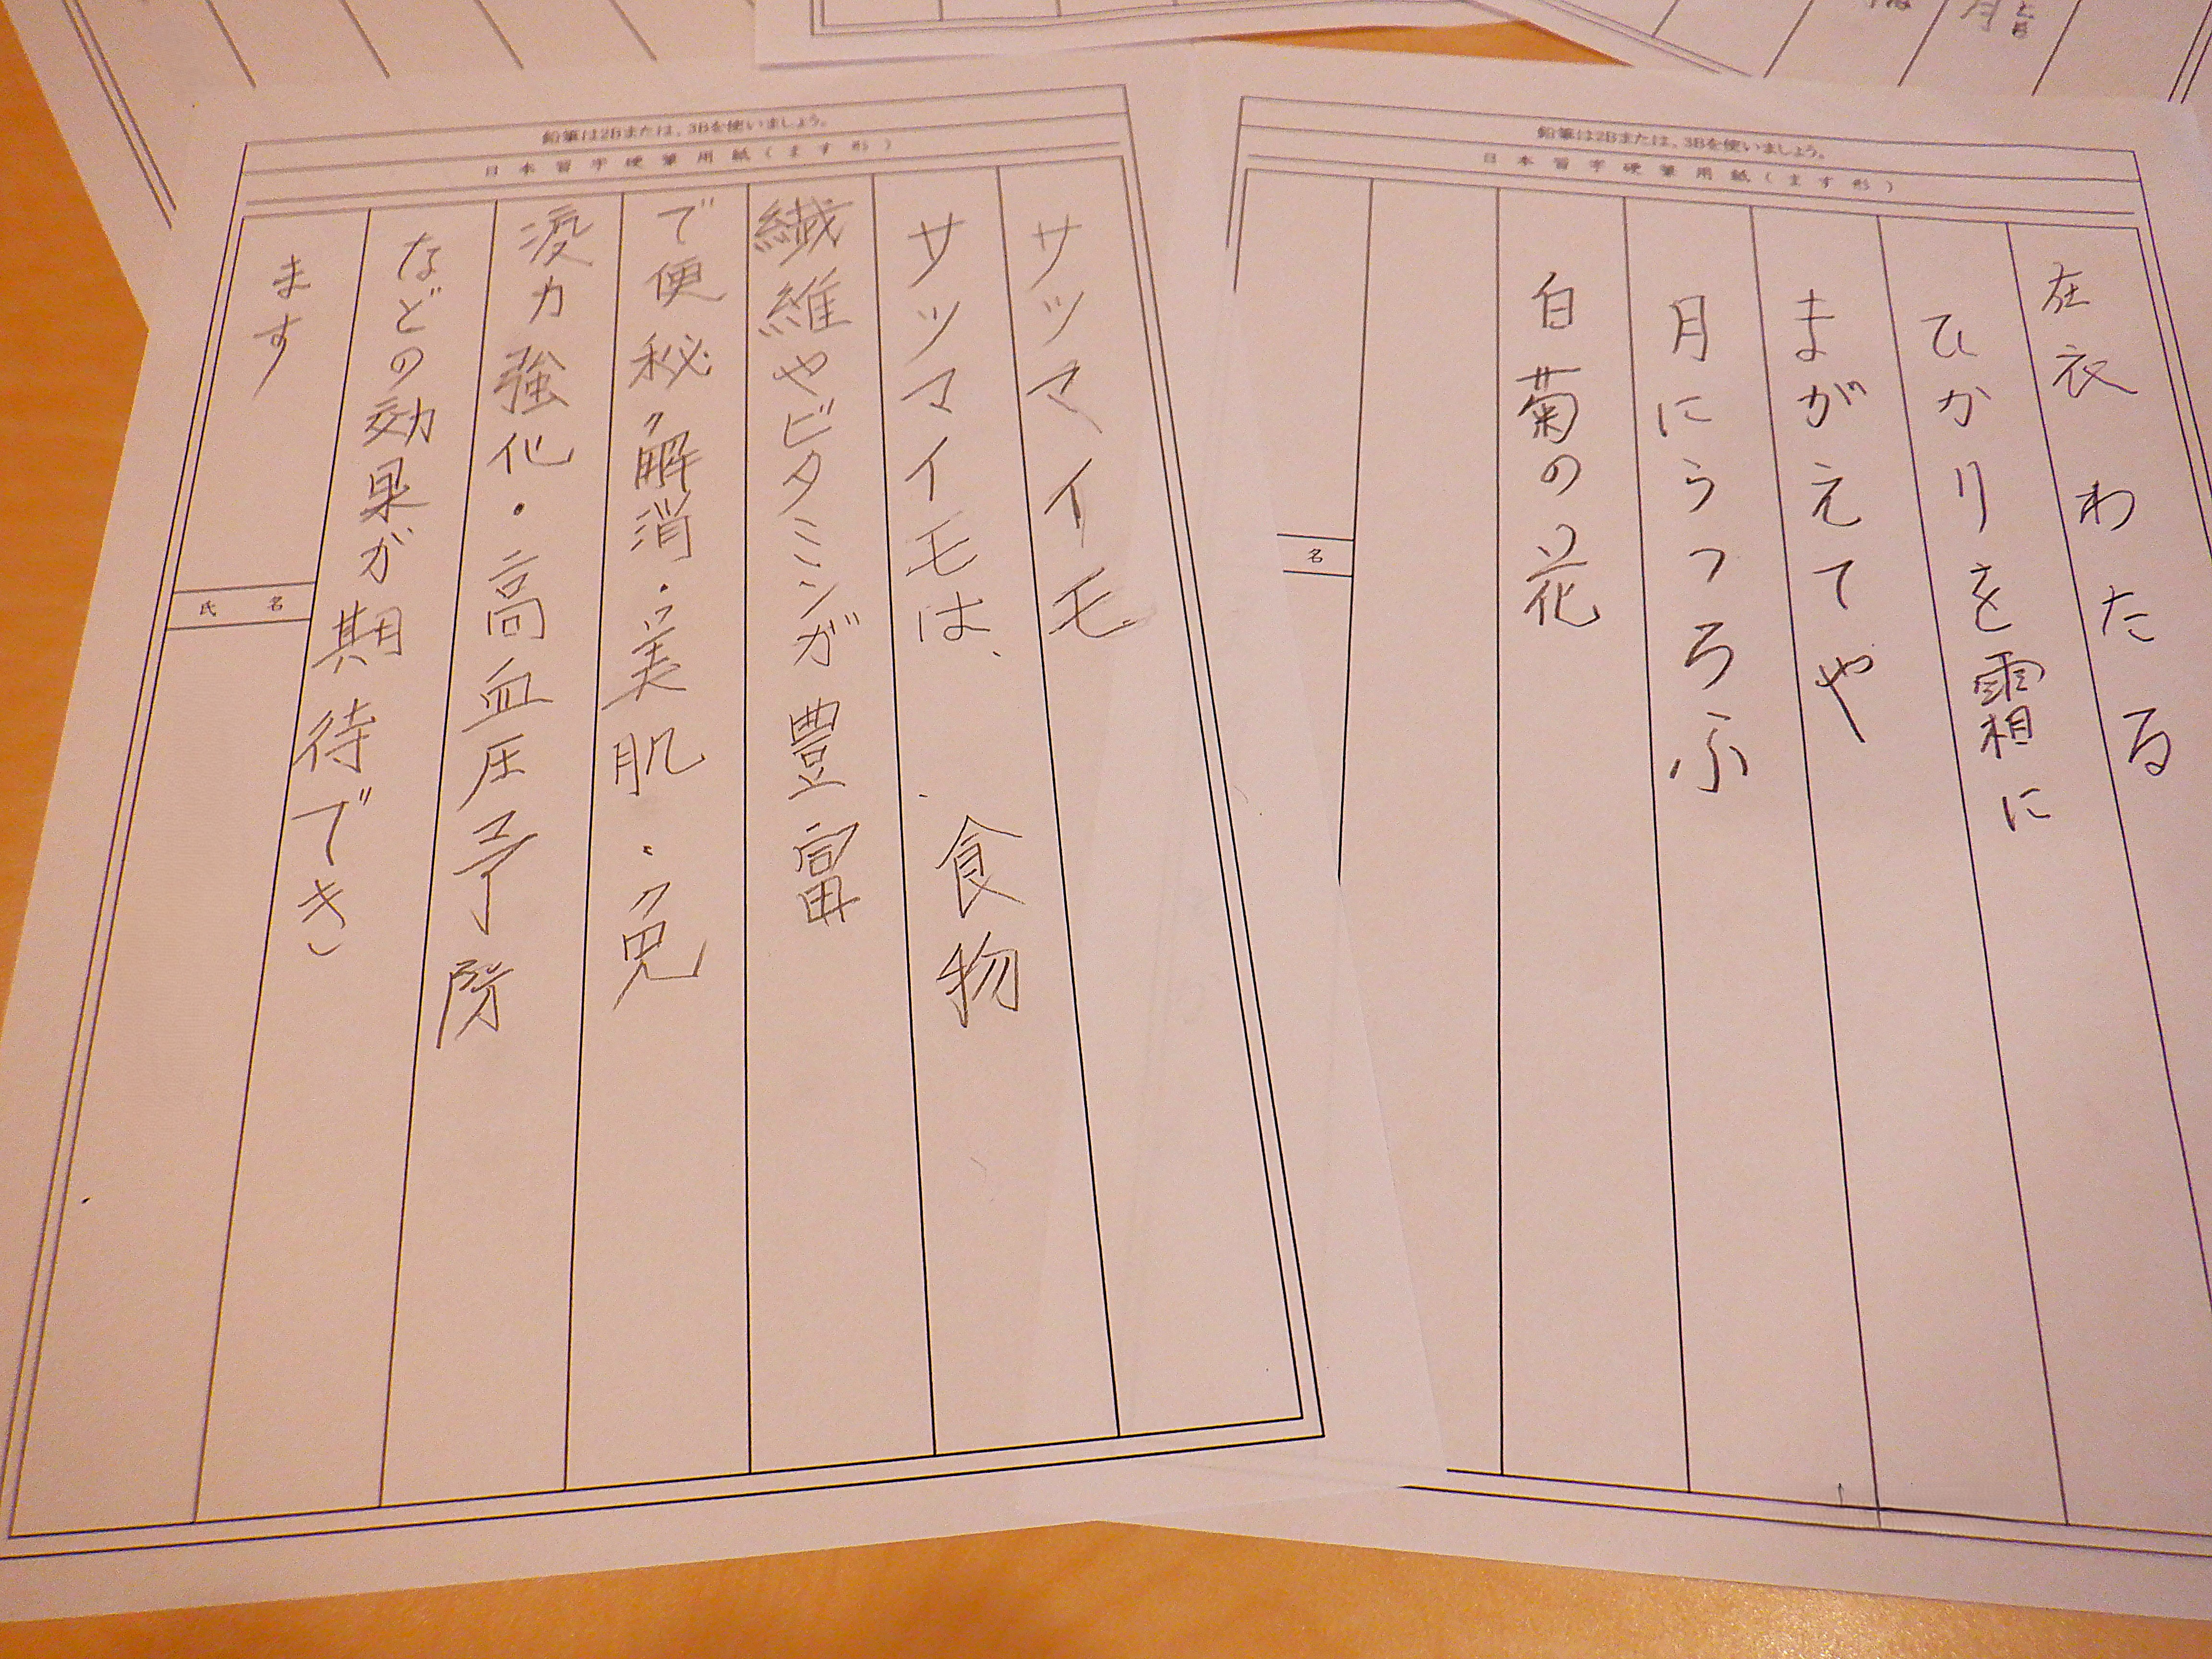 鉛筆は2Bまたは、3Bを使いましょう。
日本習字硬筆用紙(ます形)
在衣わたる
ひかりを霜に
まがえてや
月にうつろふ
白菊の花
名
鉛筆は2Bまたは、3Bを使いましょう。
日本習字硬筆用紙(ます形)
サツマイモ
サツマイモは、食物
繊維やビタミンが豊富
で便秘解消・美肌・免
疫力強化・高血圧予防
などの効果が期待でき
ます
氏名